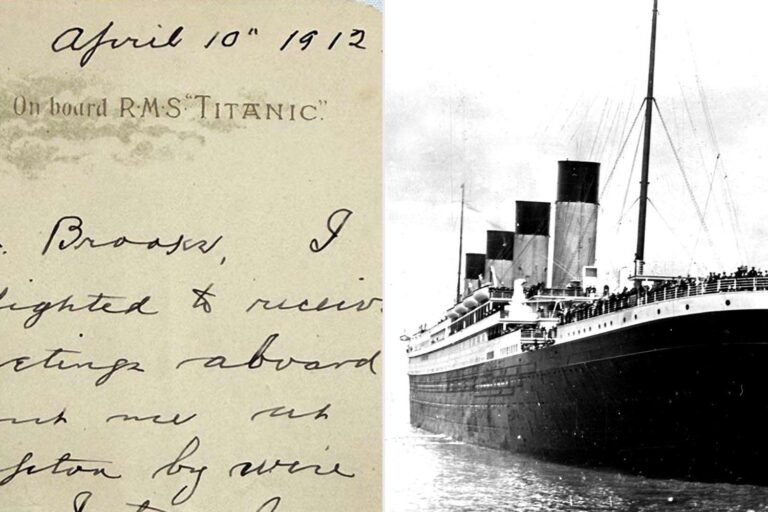 April 10" 1912
On board R·M·S·"TITANIC".
Brooks, I
lighted to receiv
etings aboard
nt me at
pton by wire
I